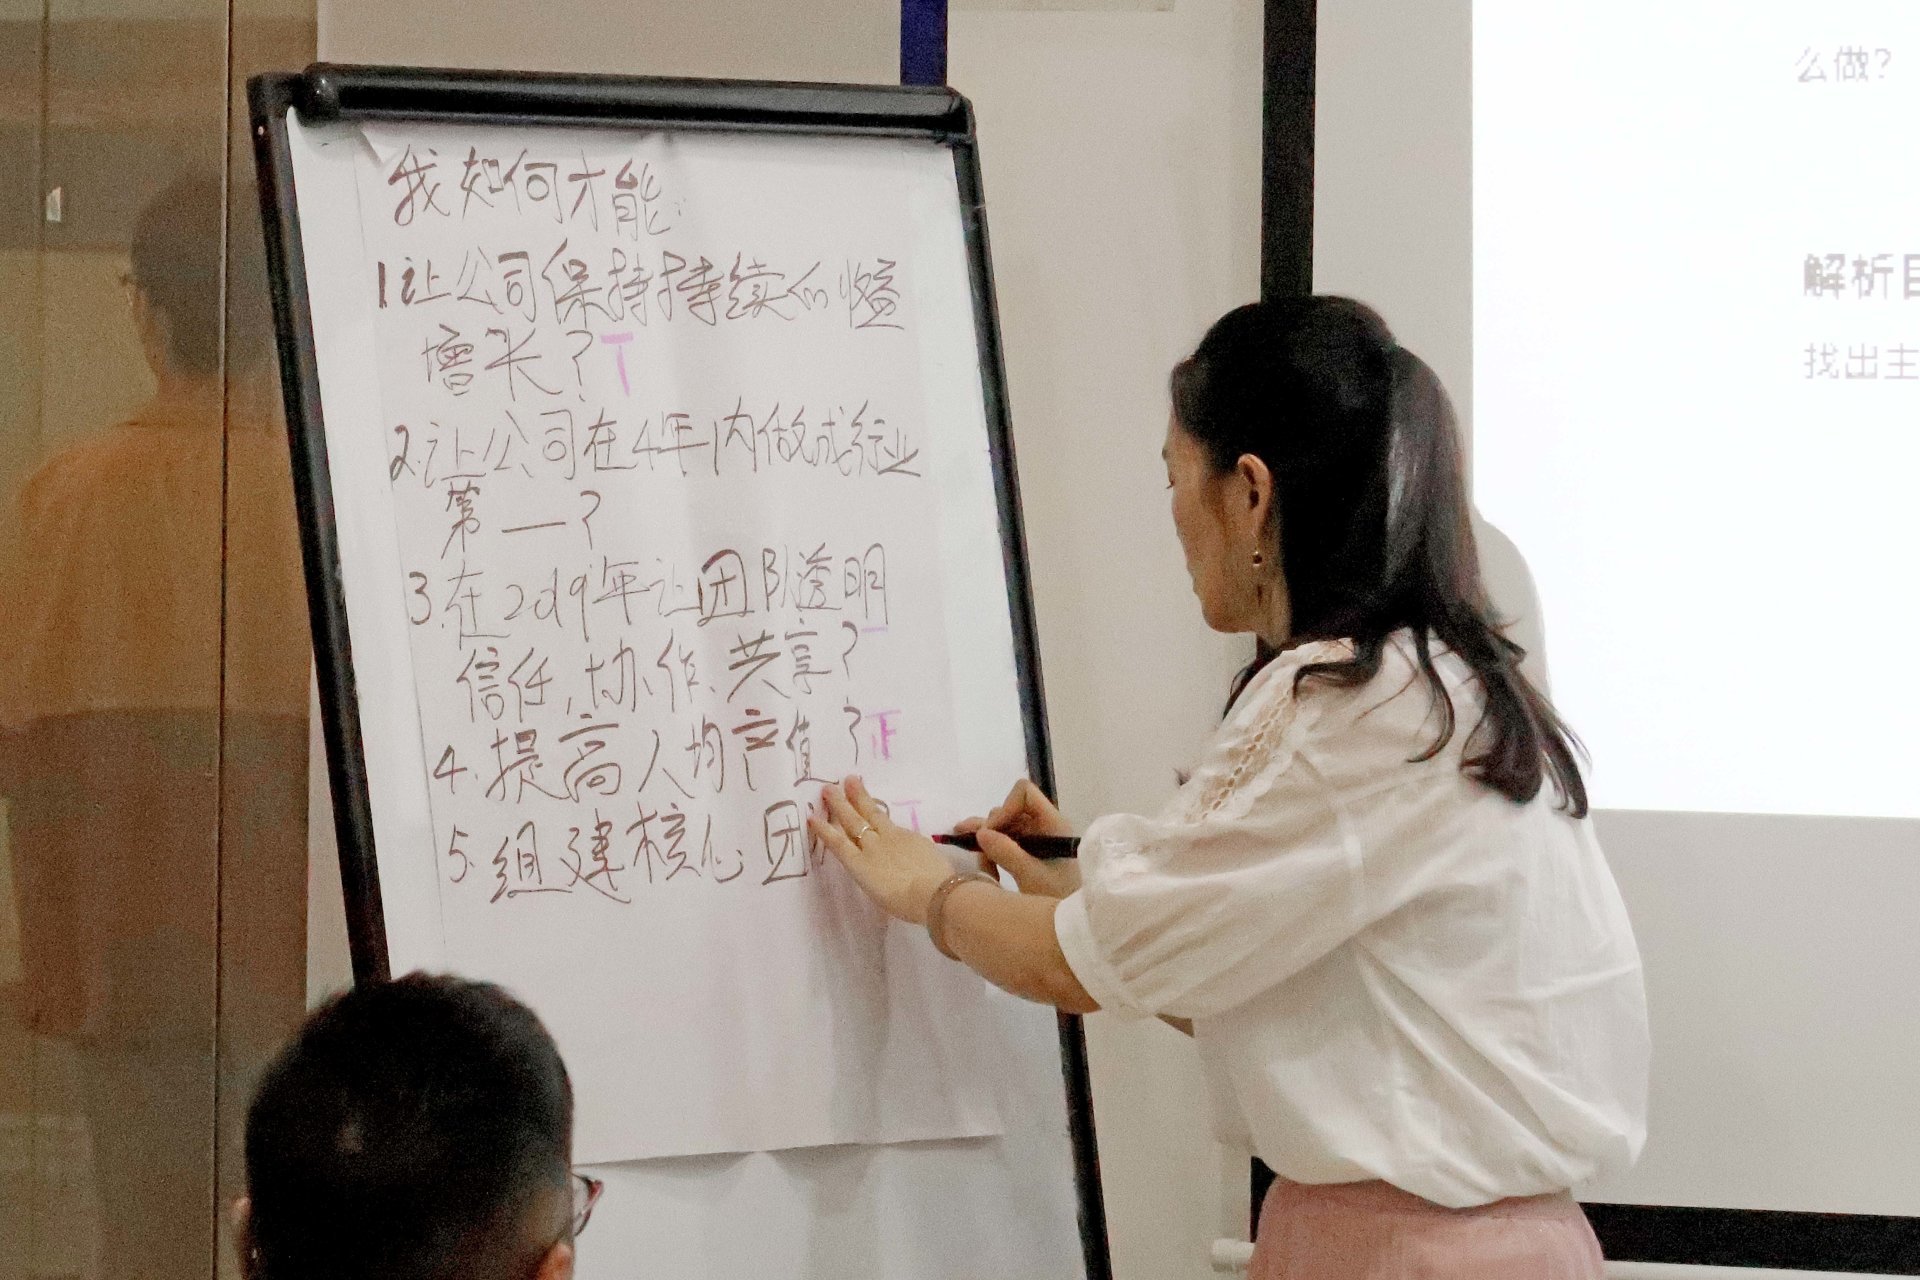 我如何才能:
1.让公司保持持续的收益
增长?
2.让公司在4年内做成行业
第一?
3.在2019年让团队透明
信任、协作、共享?
4.提高人均产值?正
5.组建核心团
么做?
解析目
找出主